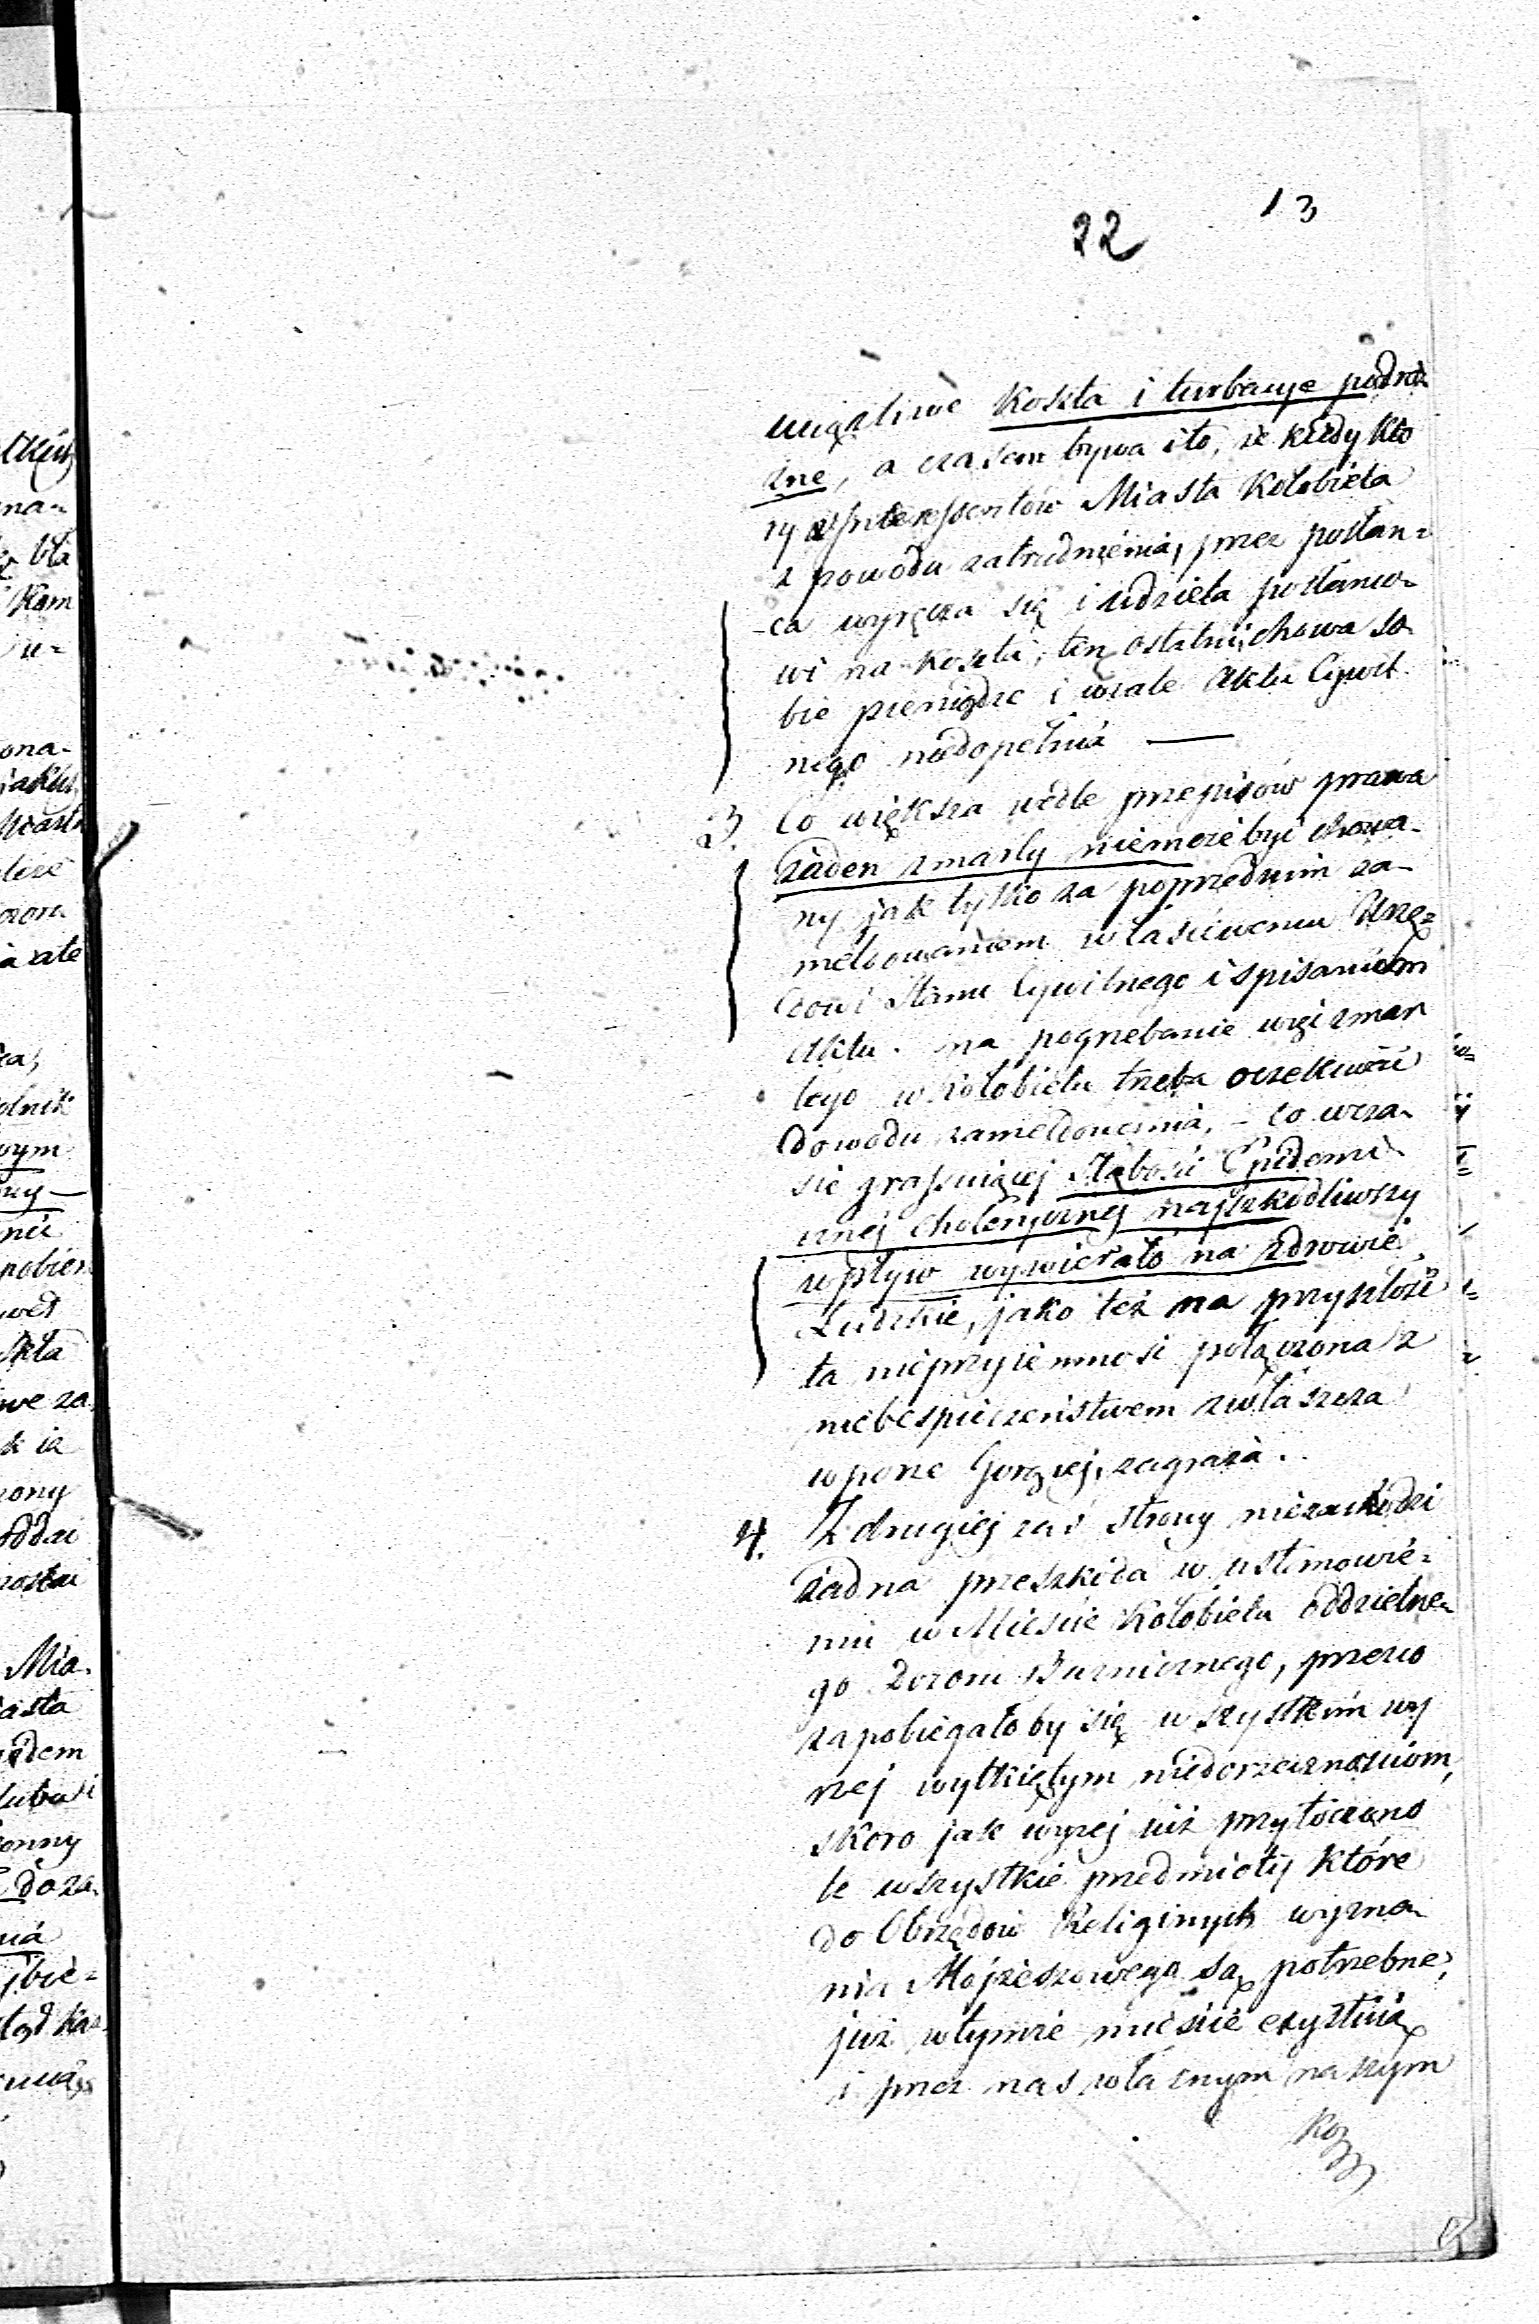 22 13
uciążliwe Koszta i turbacye podró
żne, a czasem bywa i to, że kiedy kto
ry z Interessentów Miasta Kołobiela
z powodu zatrudnienia, przez posłań=
ca wyręcza się i udziela posłanco
wi na koszta, ten ostatni, chowa so
bie pieniądze i wcale Aktu Cywil
nego niedopełnia —
3. Co większa wedle przepisów prawa
żaden zmarły niemoże być chowa-
ny jak tylko za poprzednim za-
meldowaniem właściwemu Urzę=
dowi Stanu Cywilnego i spisaniem
Aktu. na pogrzebanie więc zmar
łego w Kołobielu trzeba oczekiwać
dowodu zameldowania, - co wcza-
sie grassuiącej Słabości Epidemi
cznej cholerycznej najszkodliwszy
wpływ wywierało na zdrowie
Ludzkie, jako też na przyszłość
ta nieprzyiemność połączona z
niebespieczeństwem zwłaszcza
wporze Gorącej, zagraża.
4. Z drugiej zaś strony niezachodzi
żadna przeszkoda w ustanowie=
niu w Mieście Kołobielu oddzielne
go Dozoru Bużnicznego, przezco
zapobiegałoby się wszystkim wy
żej wytkiętym niedorzecznościom,
skoro jak wyżej już przytoczono
te wszystkie przedmioty które
do Obrzędów Religinych wyzna
nia Mojżeszowego są potrzebne,
już wtymże mieście exystuią
i przez nas własnym naszym
Ko